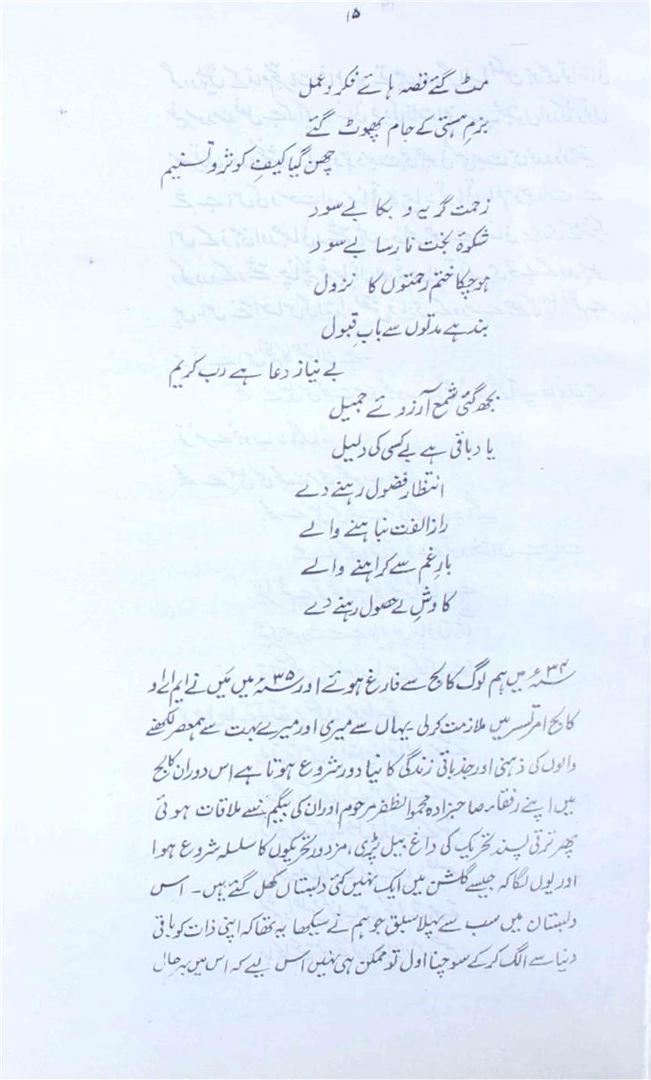 ۱۵
مٹ گئے قصہ ہائے فکر و عمل
بزمِ ہستی کے جام پھوٹ گئے
چھن گیا کیفِ کوثر و تسنیم
زحمت گریہ و بکا بے سود
شکوۂ بخت نارسا بے سود
ہوچکا ختم رحمتوں کا نزول
بند ہے مدتوں سے بابِ قبول
بے نیاز دعا ہے رب کریم
بجھ گئی شمع آرزوئے جمیل
یاد باقی ہے بے کسی کی دلیل
انتظار فضول رہنے دے
راز الفت نباہنے والے
بارِ غم سے کراہنے والے
کاوشِ بے حصول رہنے دے
۳۴ء میں ہم لوگ کالج سے فارغ ہوئے اور ۳۵ء میں میں نے ایم اے او
کالج امرتسر میں ملازمت کرلی یہاں سے میری اور میرے بہت سے ہمعصر لکھنے
والوں کی ذہنی اور جذباتی زندگی کا نیا دور شروع ہوتا ہے اس دوران کالج
میں اپنے رفقاء صاحبزادہ محمود الظفر مرحوم اور ان کی بیگم سے ملاقات ہوئی
پھر ترقی پسند تحریک کی داغ بیل پڑی، مزدور تحریکوں کا سلسلہ شروع ہوا
اور یوں لگا کہ جیسے گلشن میں ایک نہیں کئی دبستاں کھل گئے ہیں۔ اس
دبستان میں سب سے پہلا سبق جو ہم نے سیکھا یہ تھا کہ اپنی ذات کو باقی
دنیا سے الگ کرکے سوچنا اول تو ممکن ہی نہیں اس لیے کہ اس میں بہرحال